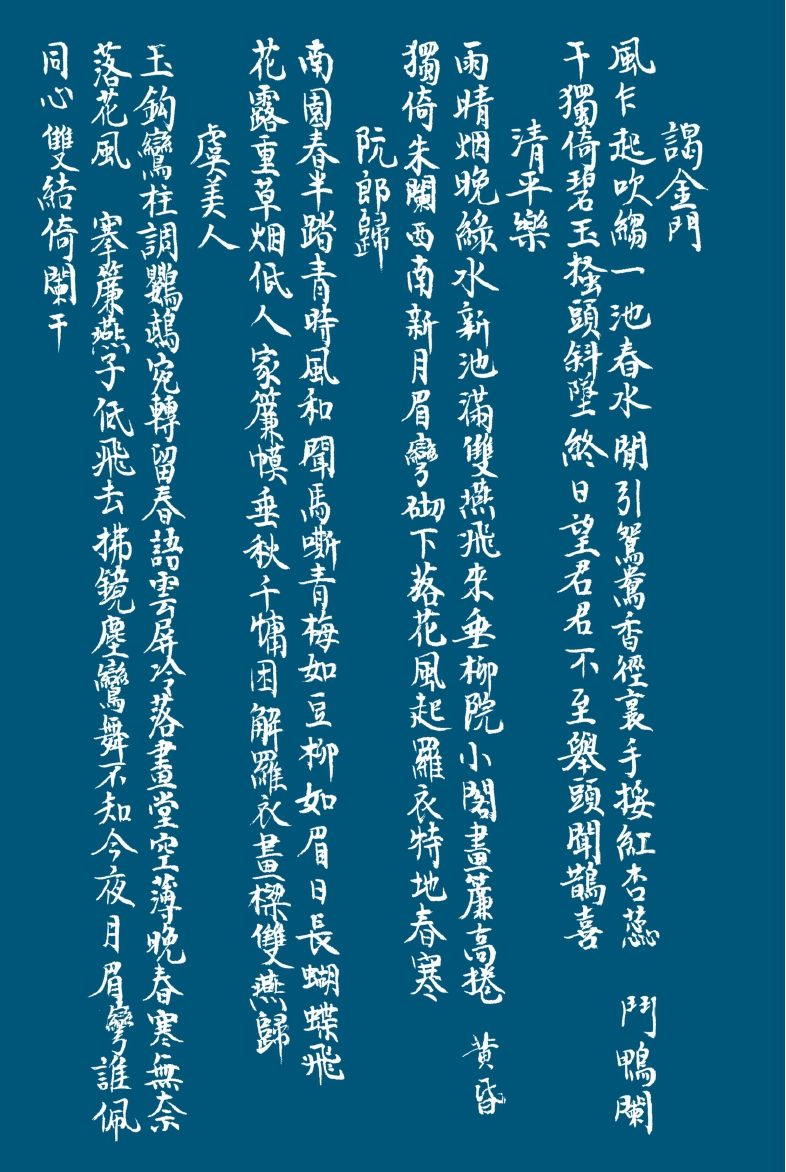 謁金門
風乍起吹縐一池春水閒引鴛鴦香徑裏手挼紅杏蕊 鬥鴨闌
干獨倚碧玉搔頭斜墜終日望君君不至舉頭聞鵲喜
清平樂
雨晴烟晚綠水新池滿雙燕飛來垂柳院小閣畫簾高捲 黃昏
獨倚朱闌西南新月眉彎砌下落花風起羅衣特地春寒
阮郎歸
南園春半踏青時風和聞馬嘶青梅如豆柳如眉日長蝴蝶飛
花露重草烟低人家簾幙垂秋千慵困解羅衣畫樑雙燕歸
虞美人
玉鈎鸞柱調鸚鵡宛轉留春語雲屏冷落畫堂空薄晚春寒無奈
落花風 搴簾燕子低飛去拂鏡塵鸞舞不知今夜月眉彎誰佩
同心雙結倚闌干